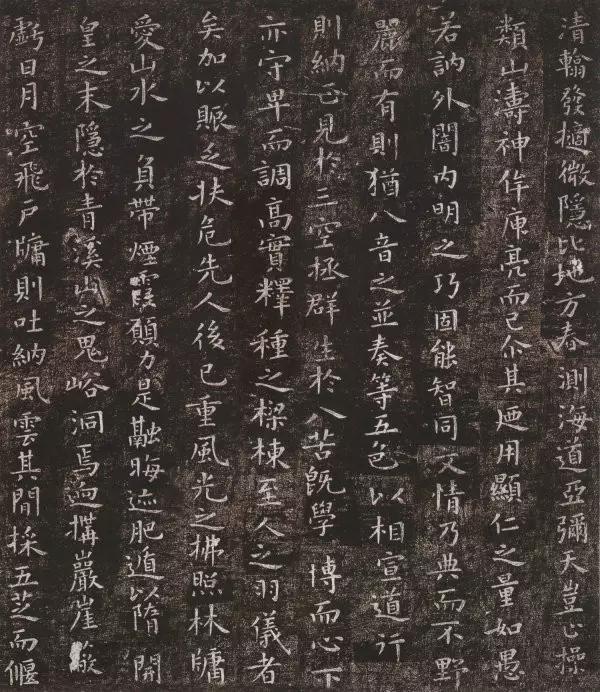 清翰發擿微隱比地方春測海道亞彌天豈止操
類山濤神侔庾亮而已尒其廼用顯仁之量如愚
若訥外闇内明之巧固能智同文情乃典而不野
麗而有則猶八音之並奏等五色以相宣道行
則納正見於三空拯群生於八苦既學博而心下
亦守卑而調高實釋種之樑棟至人之羽儀者
矣加以賑乏扶危先人後己重風光之拂照林牖
愛山水之負帶煙霞願力是融晦迹肥遁以隋開
皇之末隱於青溪山之鬼峪洞焉迺搆巖崖
虧日月空飛戶牖則吐納風雲其間採五芝而偃